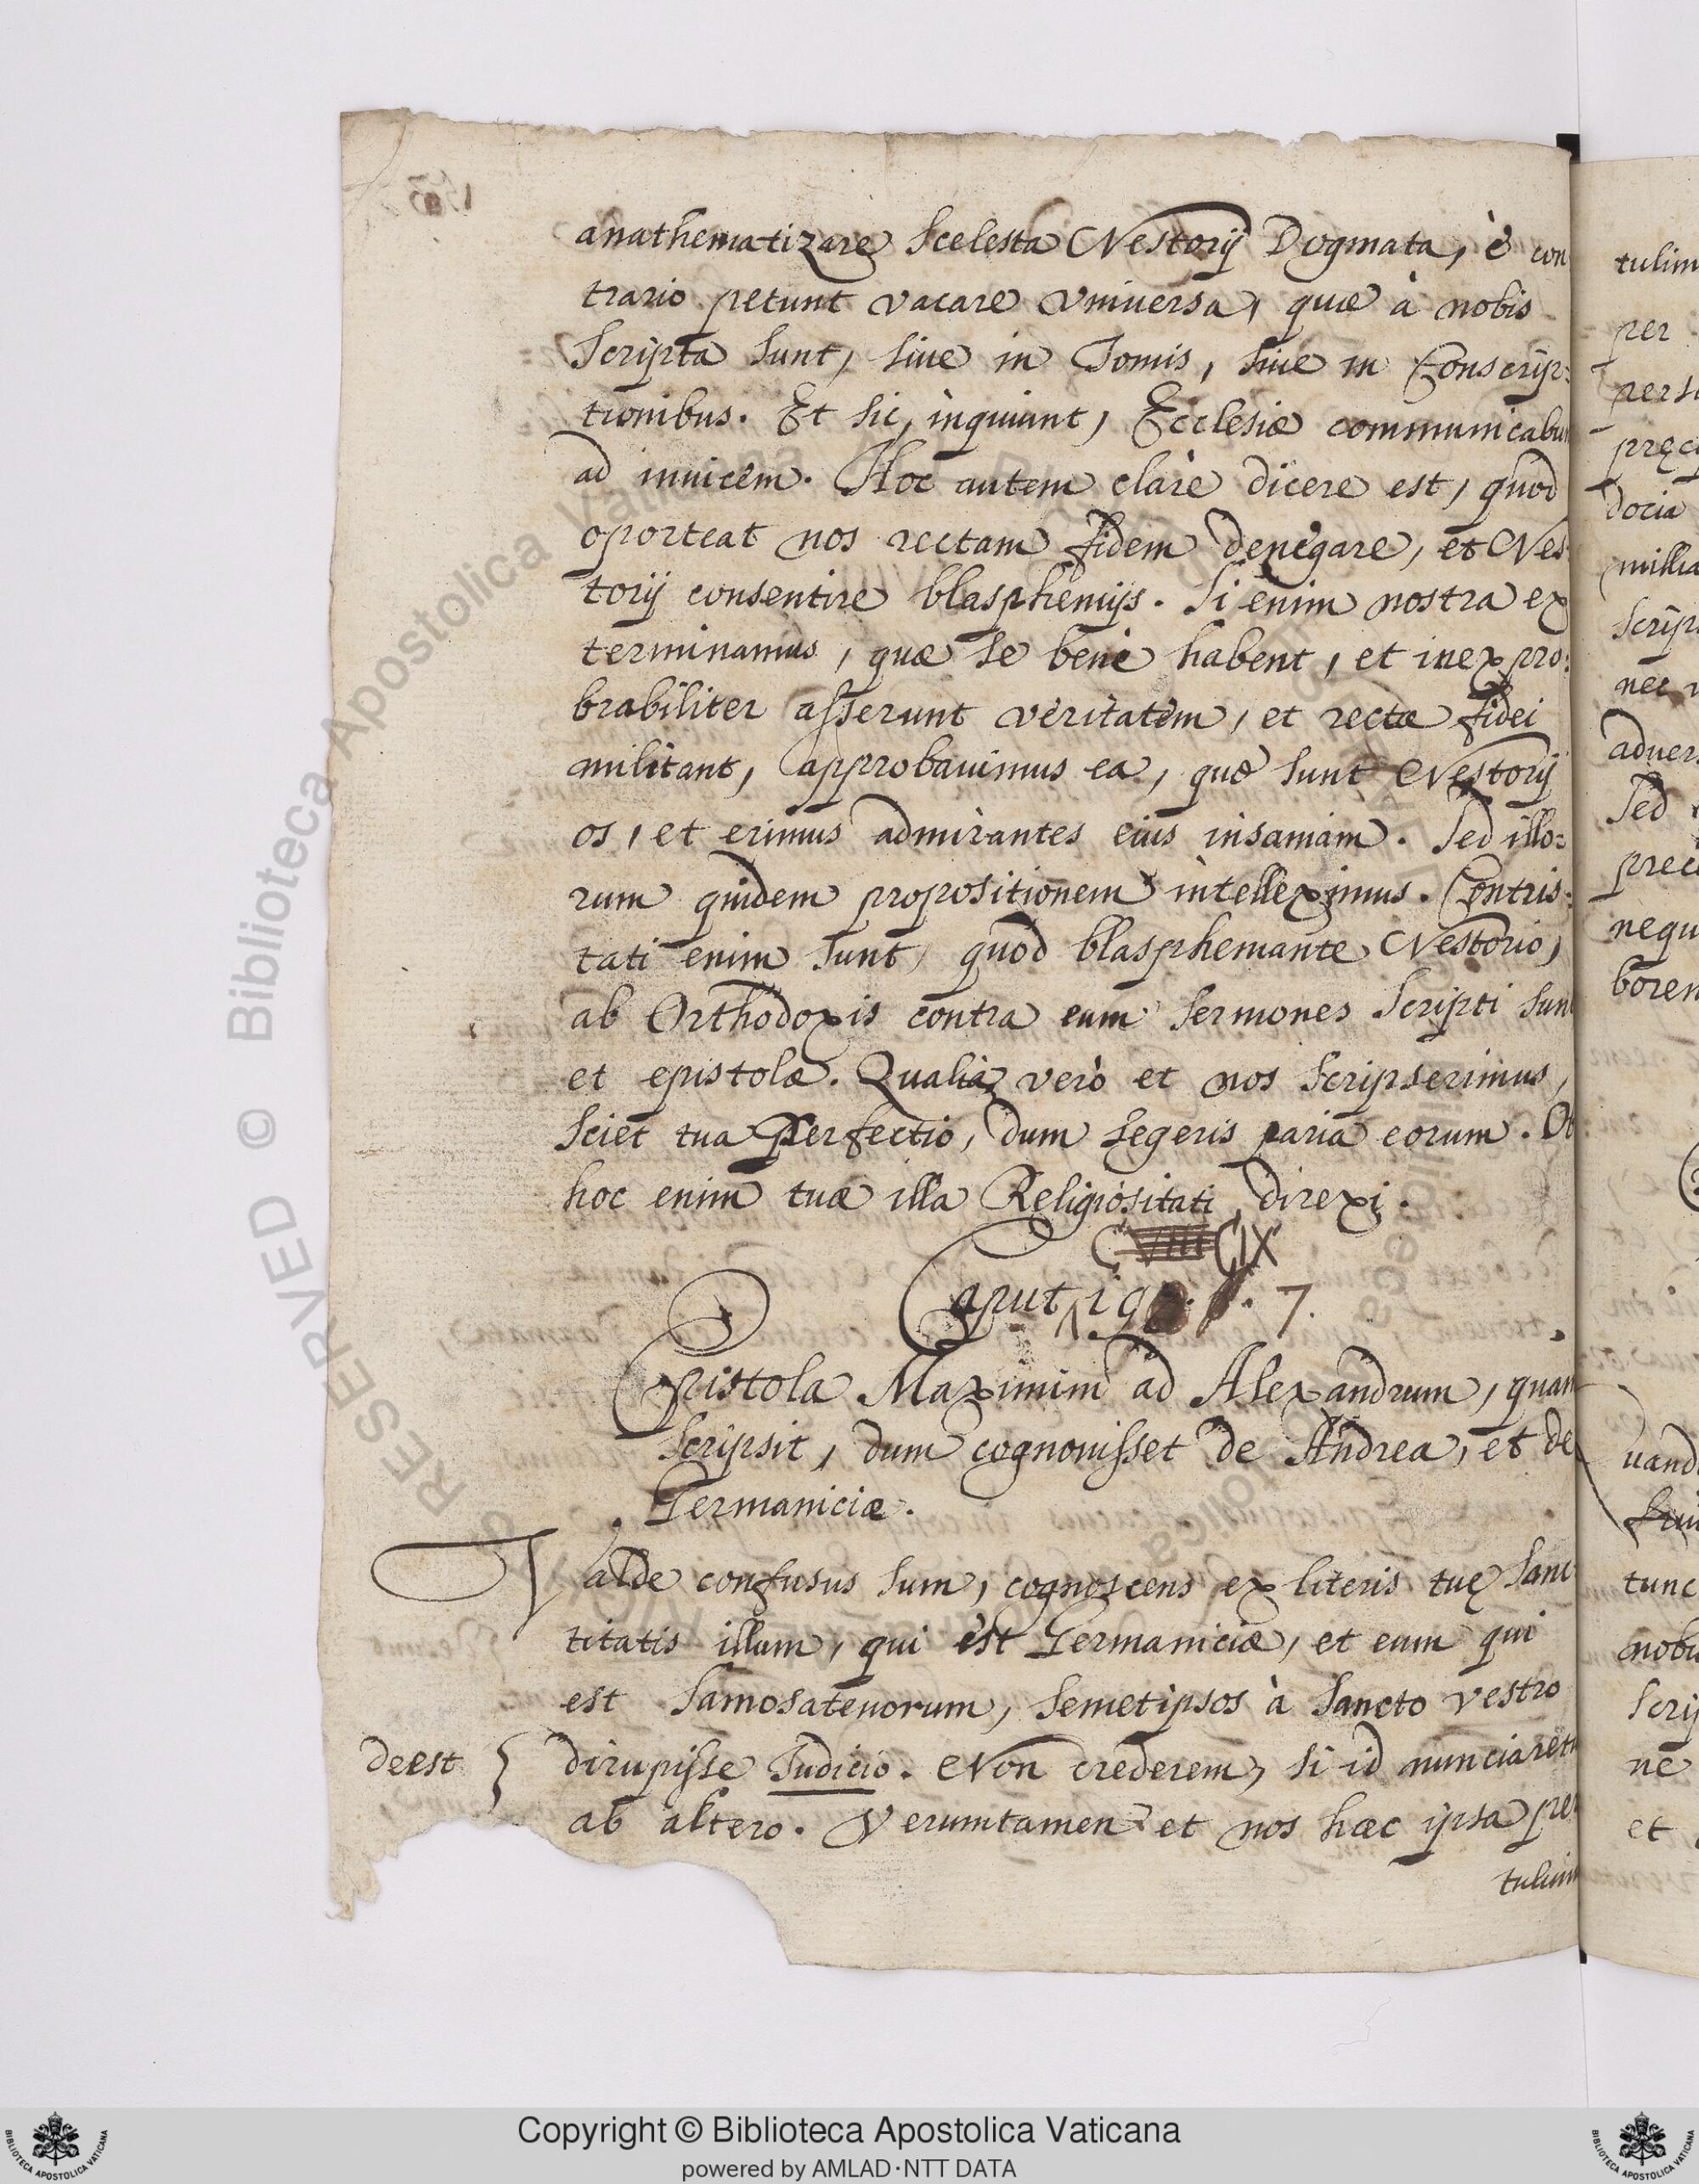 anathematizare scelesta Nestorij Dogmata, è con
trario petunt vacare vniversa, quæ à nobis
scripta sunt, siue in Tomis, siue in Conscrip=
tionibus. Et sic, inquiunt, Ecclesiæ communicabun
ad inuicem. Hoc autem clarè dicere est, quod
oporteat nos rectam fidem denegare, et Nes
torij consentire blasphemijs. Si enim nostra ex
terminamus, quæ se benè habent, et inexpro=
brabiliter asserunt veritatem, et rectæ fidei
militant, approbauimus ea, quæ sunt Nestorij
os, et erimus admirantes eius insaniam. Sed illo=
rum quidem propositionem intelleximus. Contris=
tati enim sunt, quod blasphemante Nestorio,
ab Orthodoxis contra eum sermones scripti sunt
et epistolæ. Qualia verò et nos scripserimus,
sciet tua Perfectio, dum legeris paria eorum. Ob
hoc enim tuæ illa Religiositati direxi.
CVIII CIX
Caput 19 . 7.
Epistola Maximini ad Alexandrum, quam
scripsit, dum cognouisset de Andrea, et de
Germaniciæ.
Valde confusus sum, cognoscens ex literis tuę sanc
titatis illum, qui est Germaniciæ, et eum qui
est Samosatenorum, semetipsos à sancto vestro
deest } dirupisse Iudicio. Non crederem, si id nunciaretur
ab altero. Verumtamen et nos hæc ipsa per
tulim
tulim
per
pers
pręc
docia
millia
scrip
nec
aduers
Sed
prec
nequ
borem
uand
tunc
nobi
scrip
ne
et
RESERVED © Biblioteca Apostolica Vaticana
Copyright © Biblioteca Apostolica Vaticana
powered by AMLAD·NTT DATA
BIBLIOTECA APOSTOLICA VATICANA
BIBLIOTECA APOSTOLICA VATICANA